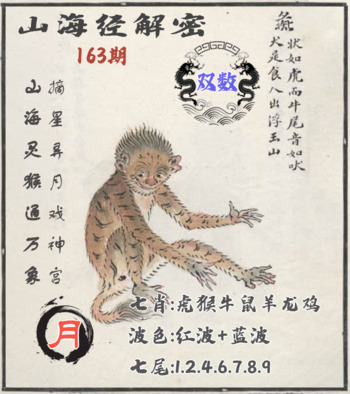 山海经解密
163期
双数
彘
状如虎而牛尾音如吠
犬是食人出浮玉山
摘星弄月戏神宫
山海灵猴通万象
月
七肖:虎猴牛鼠羊龙鸡
波色:红波+蓝波
七尾:1.2.4.6.7.8.9